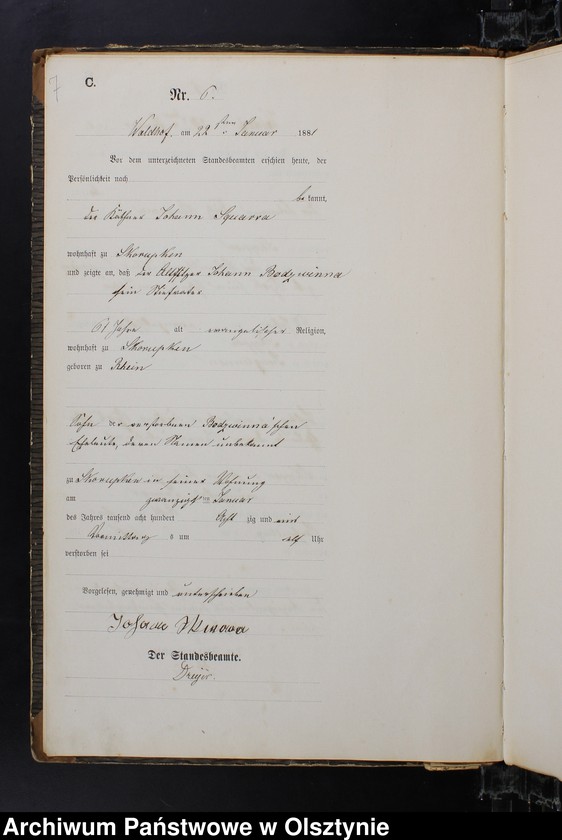 7
C.
Nr. 6.
Waldhof, am 22sten Januar 1881
Vor dem unterzeichneten Standesbeamten erschien heute, der
Persönlichkeit nach
bekannt,
der Käthner Johann Squarra
wohnhaft zu Skorupken
und zeigte an, daß der Altsitzer Johann Bodzwinna
sein Stiefvater
61 Jahre alt evangelischer Religion,
wohnhaft zu Skorupken
geboren zu Rhein
Sohn der verstorbenen Bodzwinna'schen
Eheleute, deren Namen unbekannt
zu Skorupken in seiner Wohnung
am zwanzigsten Januar
des Jahres tausend acht hundert Acht zig und eins
Vormittags um elf Uhr
verstorben sei
Vorgelesen, genehmigt und unterschrieben
Johann Skwara
Der Standesbeamte.
Archiwum Państwowe w Olsztynie